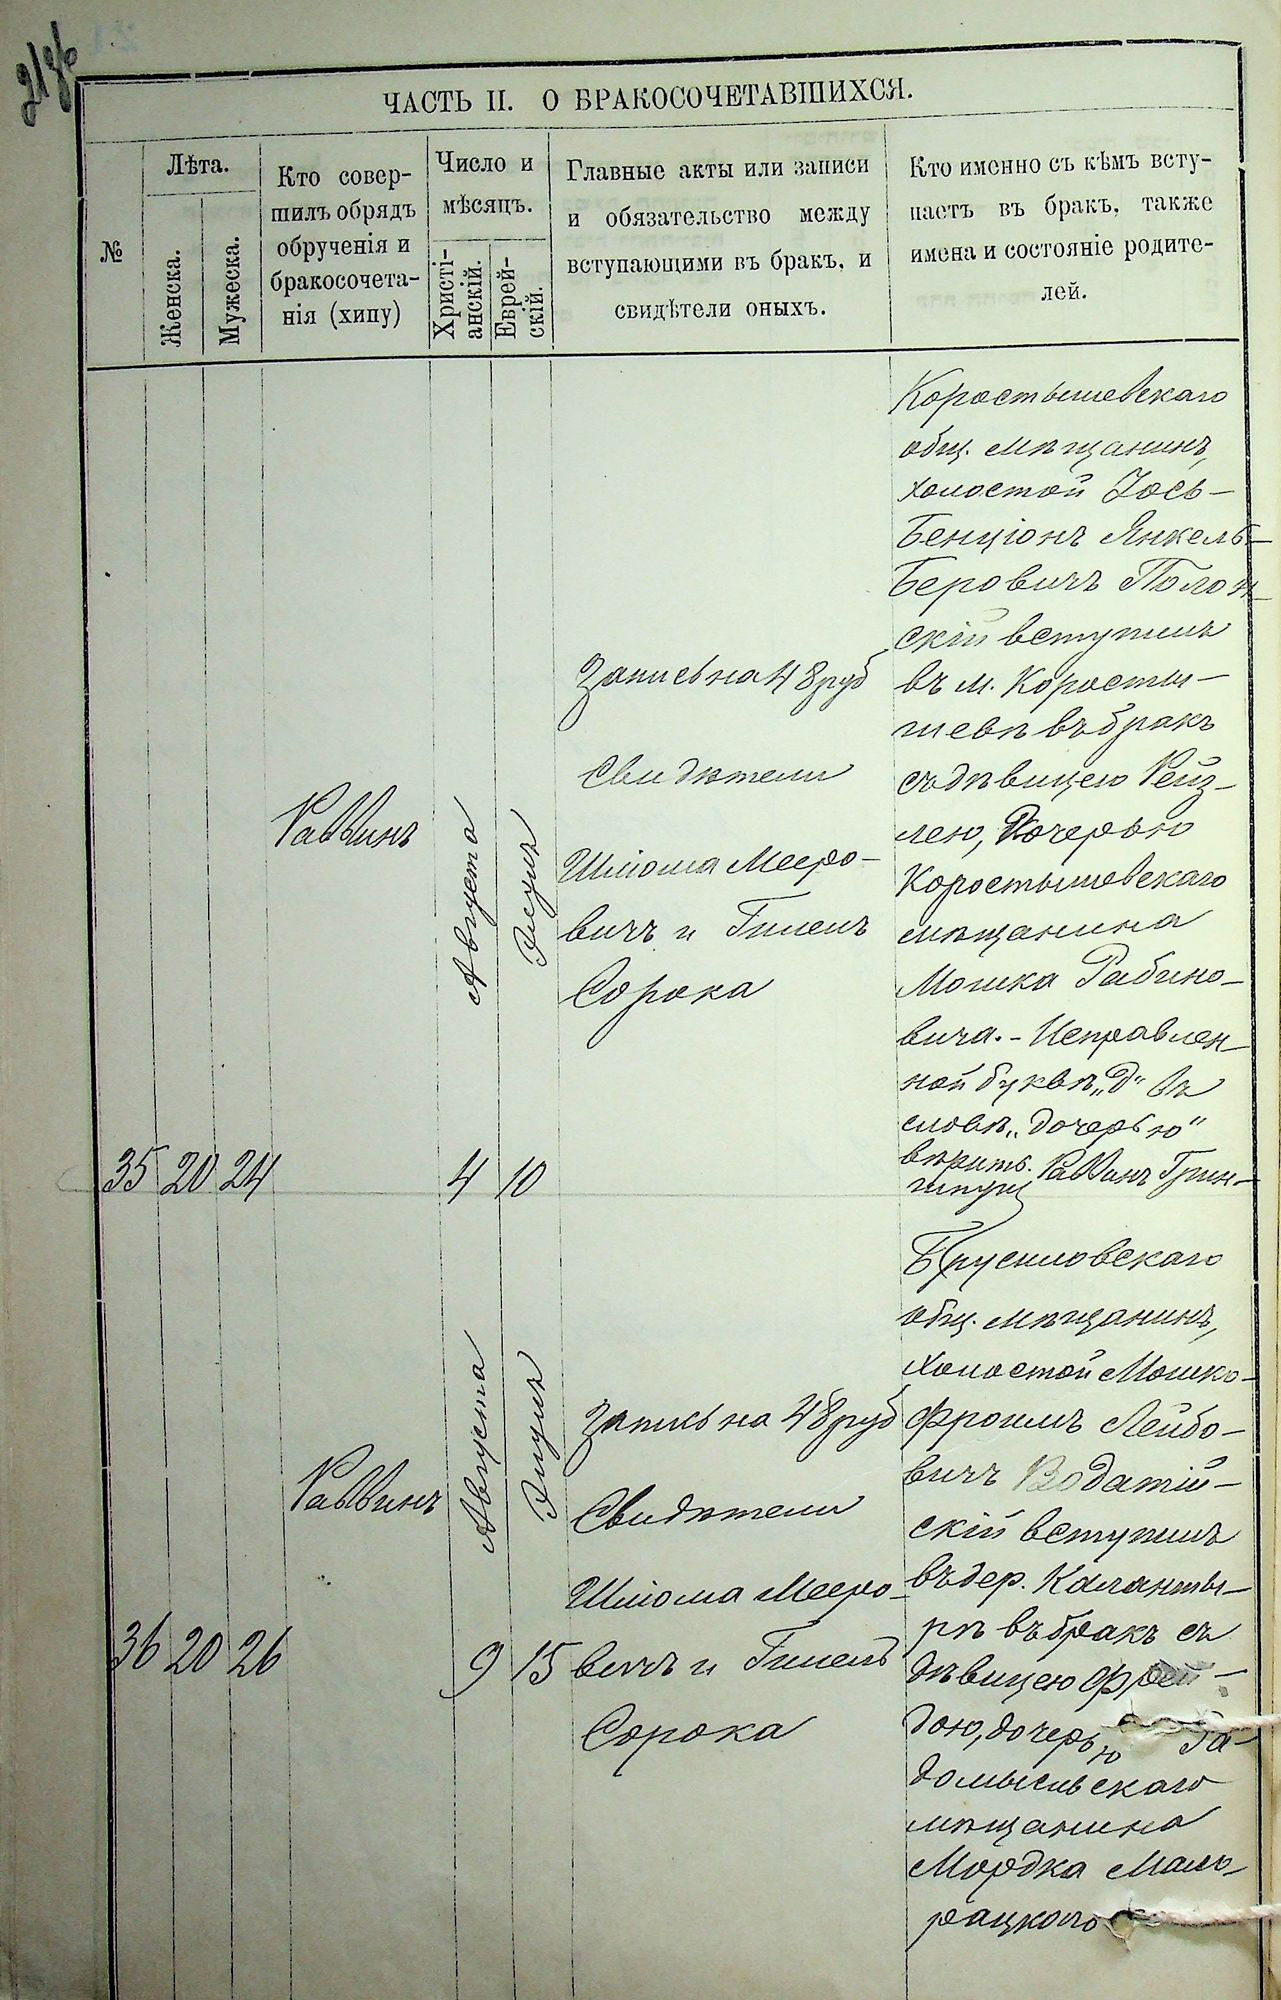 21об
ЧАСТЬ II. О БРАКОСОЧЕТАВШИХСЯ.
№
Лѣта.
Женска.
Мужеска.
Кто совер-
шилъ обрядъ
обрученія и
бракосочета-
нія (хипу)
Число и
мѣсяцъ.
Христі-
анскій.
Еврей-
скій.
Главные акты или записи
и обязательство между
вступающими въ бракъ, и
свидѣтели оныхъ.
Кто именно съ кѣмъ всту-
паетъ въ бракъ, также
имена и состояніе родите-
лей.
35
20
24
Раввинъ
Августа
4
Элулъ
10
Запись на 48 руб
Свидѣтели
Шлома Мееро-
вичъ и Гилель
Сорока
Коростышевскаго
общ. мѣщанинъ,
холостой Іось-
Бенціонъ Янкель-
Беровичъ Полон-
скій вступилъ
въ м. Коросты-
шевѣ въ бракъ
съ дѣвицею Рейз-
лею, Дочерью
Коростышевскаго
мѣщанина
Мошка Рабино-
вича. - Исправлен-
ной буквѣ „д" въ
словѣ „дочерью"
вѣрить. Раввинъ Грин-
шпунъ
36
20
26
Раввинъ
Августа
9
Элулъ
15
Запись на 48 руб
Свидѣтели
Шлома Мееро-
вичъ и Гилель
Сорока
Брусиловскаго
общ. мѣщанинъ,
холостой Мошко-
Фроимъ Лейбо-
вичъ Водатій-
скій вступилъ
въ дер. Каланты-
рѣ въ бракъ съ
дѣвицею Фрей-
дою, дочерью Ра-
домысльскаго
мѣщанина
Мордка Маль-
рацкого